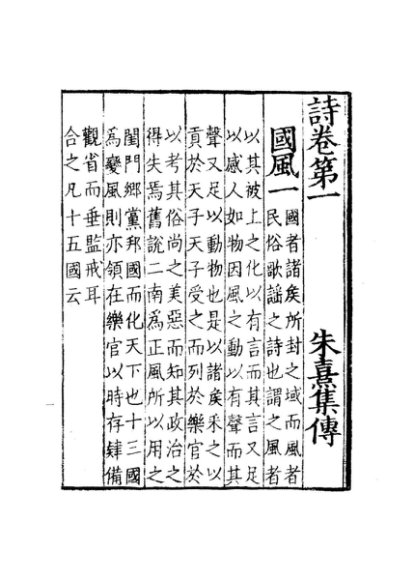 詩卷第一 朱熹集傳
國風一 國者諸矦所封之域而風者
民俗歌謠之詩也謂之風者
以其被上之化以有言而其言又足
以感人如物因風之動以有聲而其
聲又足以動物也是以諸矦采之以
貢於天子天子受之而列於樂官於
以考其俗尚之美惡而知其政治之
得失焉舊說二南為正風所以用之
閨門鄉黨邦國而化天下也十三國
為變風則亦領在樂官以時存肄備
觀省而垂監戒耳
合之凡十五國云